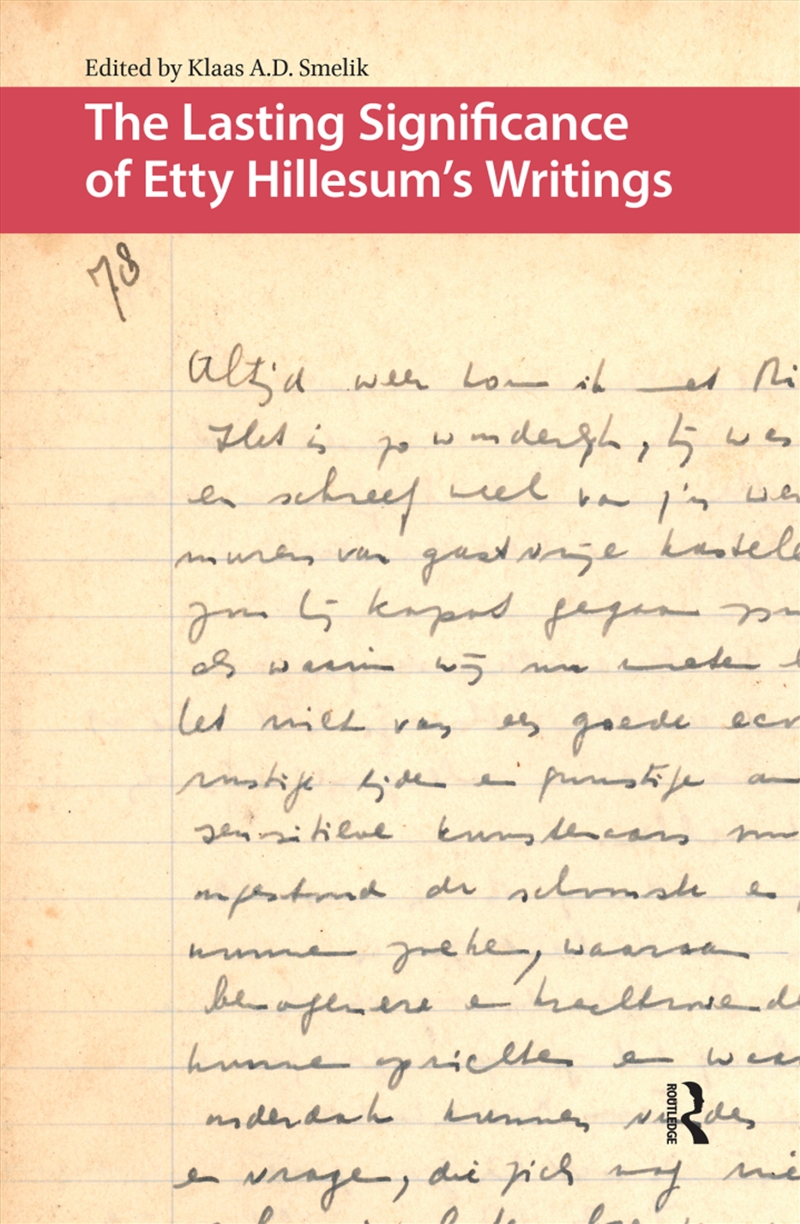 Edited by Klaas A.D. Smelik
The Lasting Significance
of Etty Hillesum's Writings
78
Altijd weer kom ik met Ri
Het is zo wonderlijk, hij was
en schreef veel van z'n wer
muren van gastvrije kastele
zou hij kapot gegaan zijn
als waarin wij nu moeten l
het niet van een goede eco
rustige tijden en gunstige om
sensitieve kunstenaars
ongestoord de schoonste en
kunnen zoeken, waaraan
bewogener en
kunnen oprichten en waar
onderdak kunnen vinden
en vragen, die zich nog nie
ROUTLEDGE